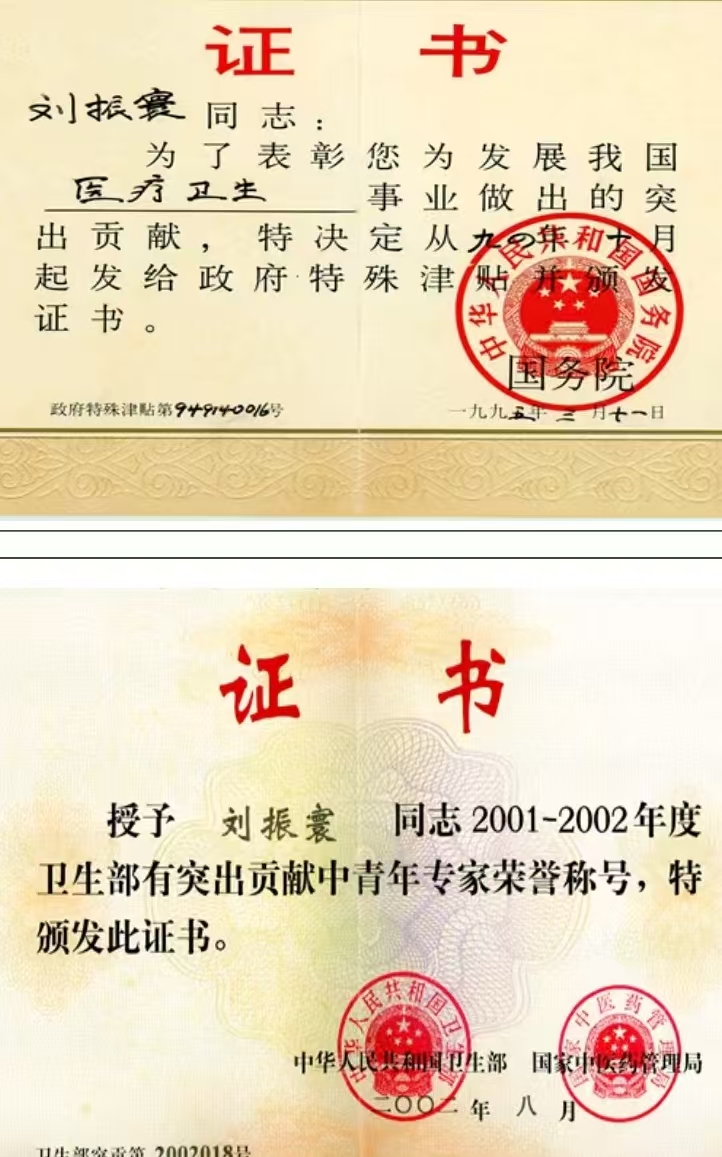 证 书
刘振寰 同志：
为了表彰您为发展我国
医疗卫生 事业做出的突
出贡献，特决定从九四年十月
起发给政府特殊津贴并颁发
证书。
中华人民共和国国务院
国务院
政府特殊津贴第949140016号
一九九五年三月十一日
证 书
授予 刘振寰 同志2001-2002年度
卫生部有突出贡献中青年专家荣誉称号，特
颁发此证书。
中华人民共和国卫生部
国家中医药管理局
中华人民共和国卫生部 国家中医药管理局
二〇〇二年 八 月
卫生部突贡第 2002018号